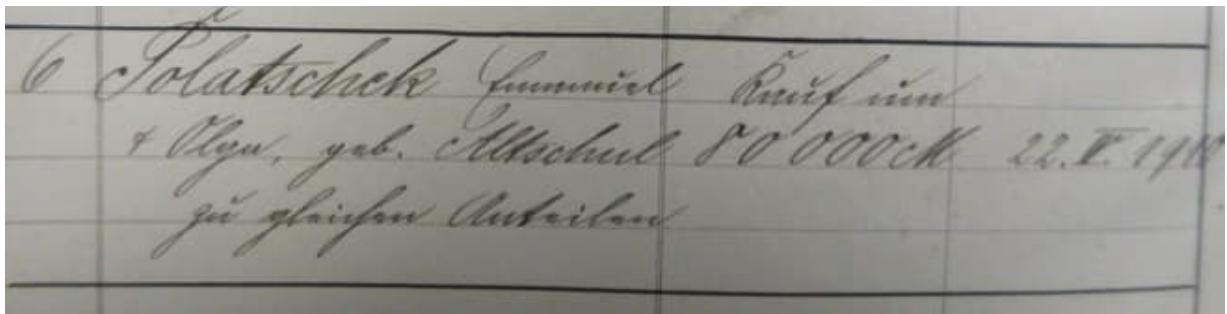 6 Polatschek Emanuel Kauf um
+ Olga, geb. Altschul 80 000 M 22. IV. 1910
zu gleichen Anteilen